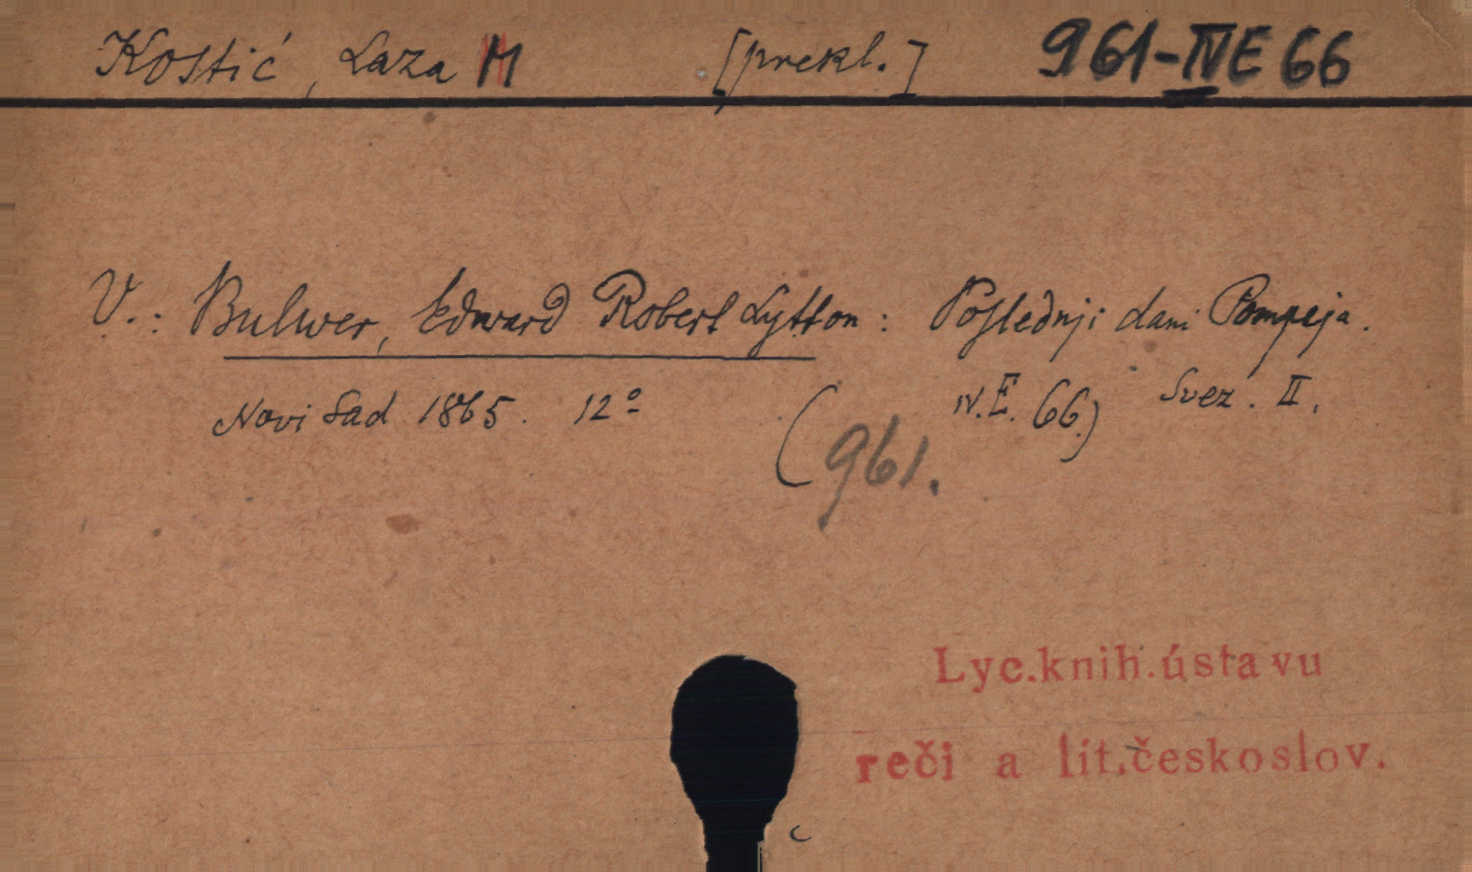 Kostić, Laza M [prekl.] 961-IVE 66
V.: Bulwer, Edward Robert Lytton: Poslednji dani Pompeja.
Novi Sad 1865. 12º (961. IV.E. 66.) Svez. II.
Lyc.knih.ústavu
reči a lit.českoslov.